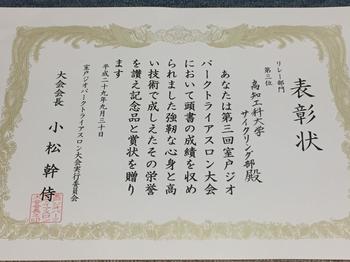 表彰状
リレー部門
第三位
高知工科大学
サイクリング部殿
あなたは第三回室戸ジオ
パークトライアスロン大会
において頭書の成績を収め
られました強靭な心身と高
い技術で成しえたその栄誉
を讃え記念品と賞状を贈り
ます
平成二十九年九月三十日
室戸ジオパークトライアスロン大会実行委員会
大会会長 小松幹侍